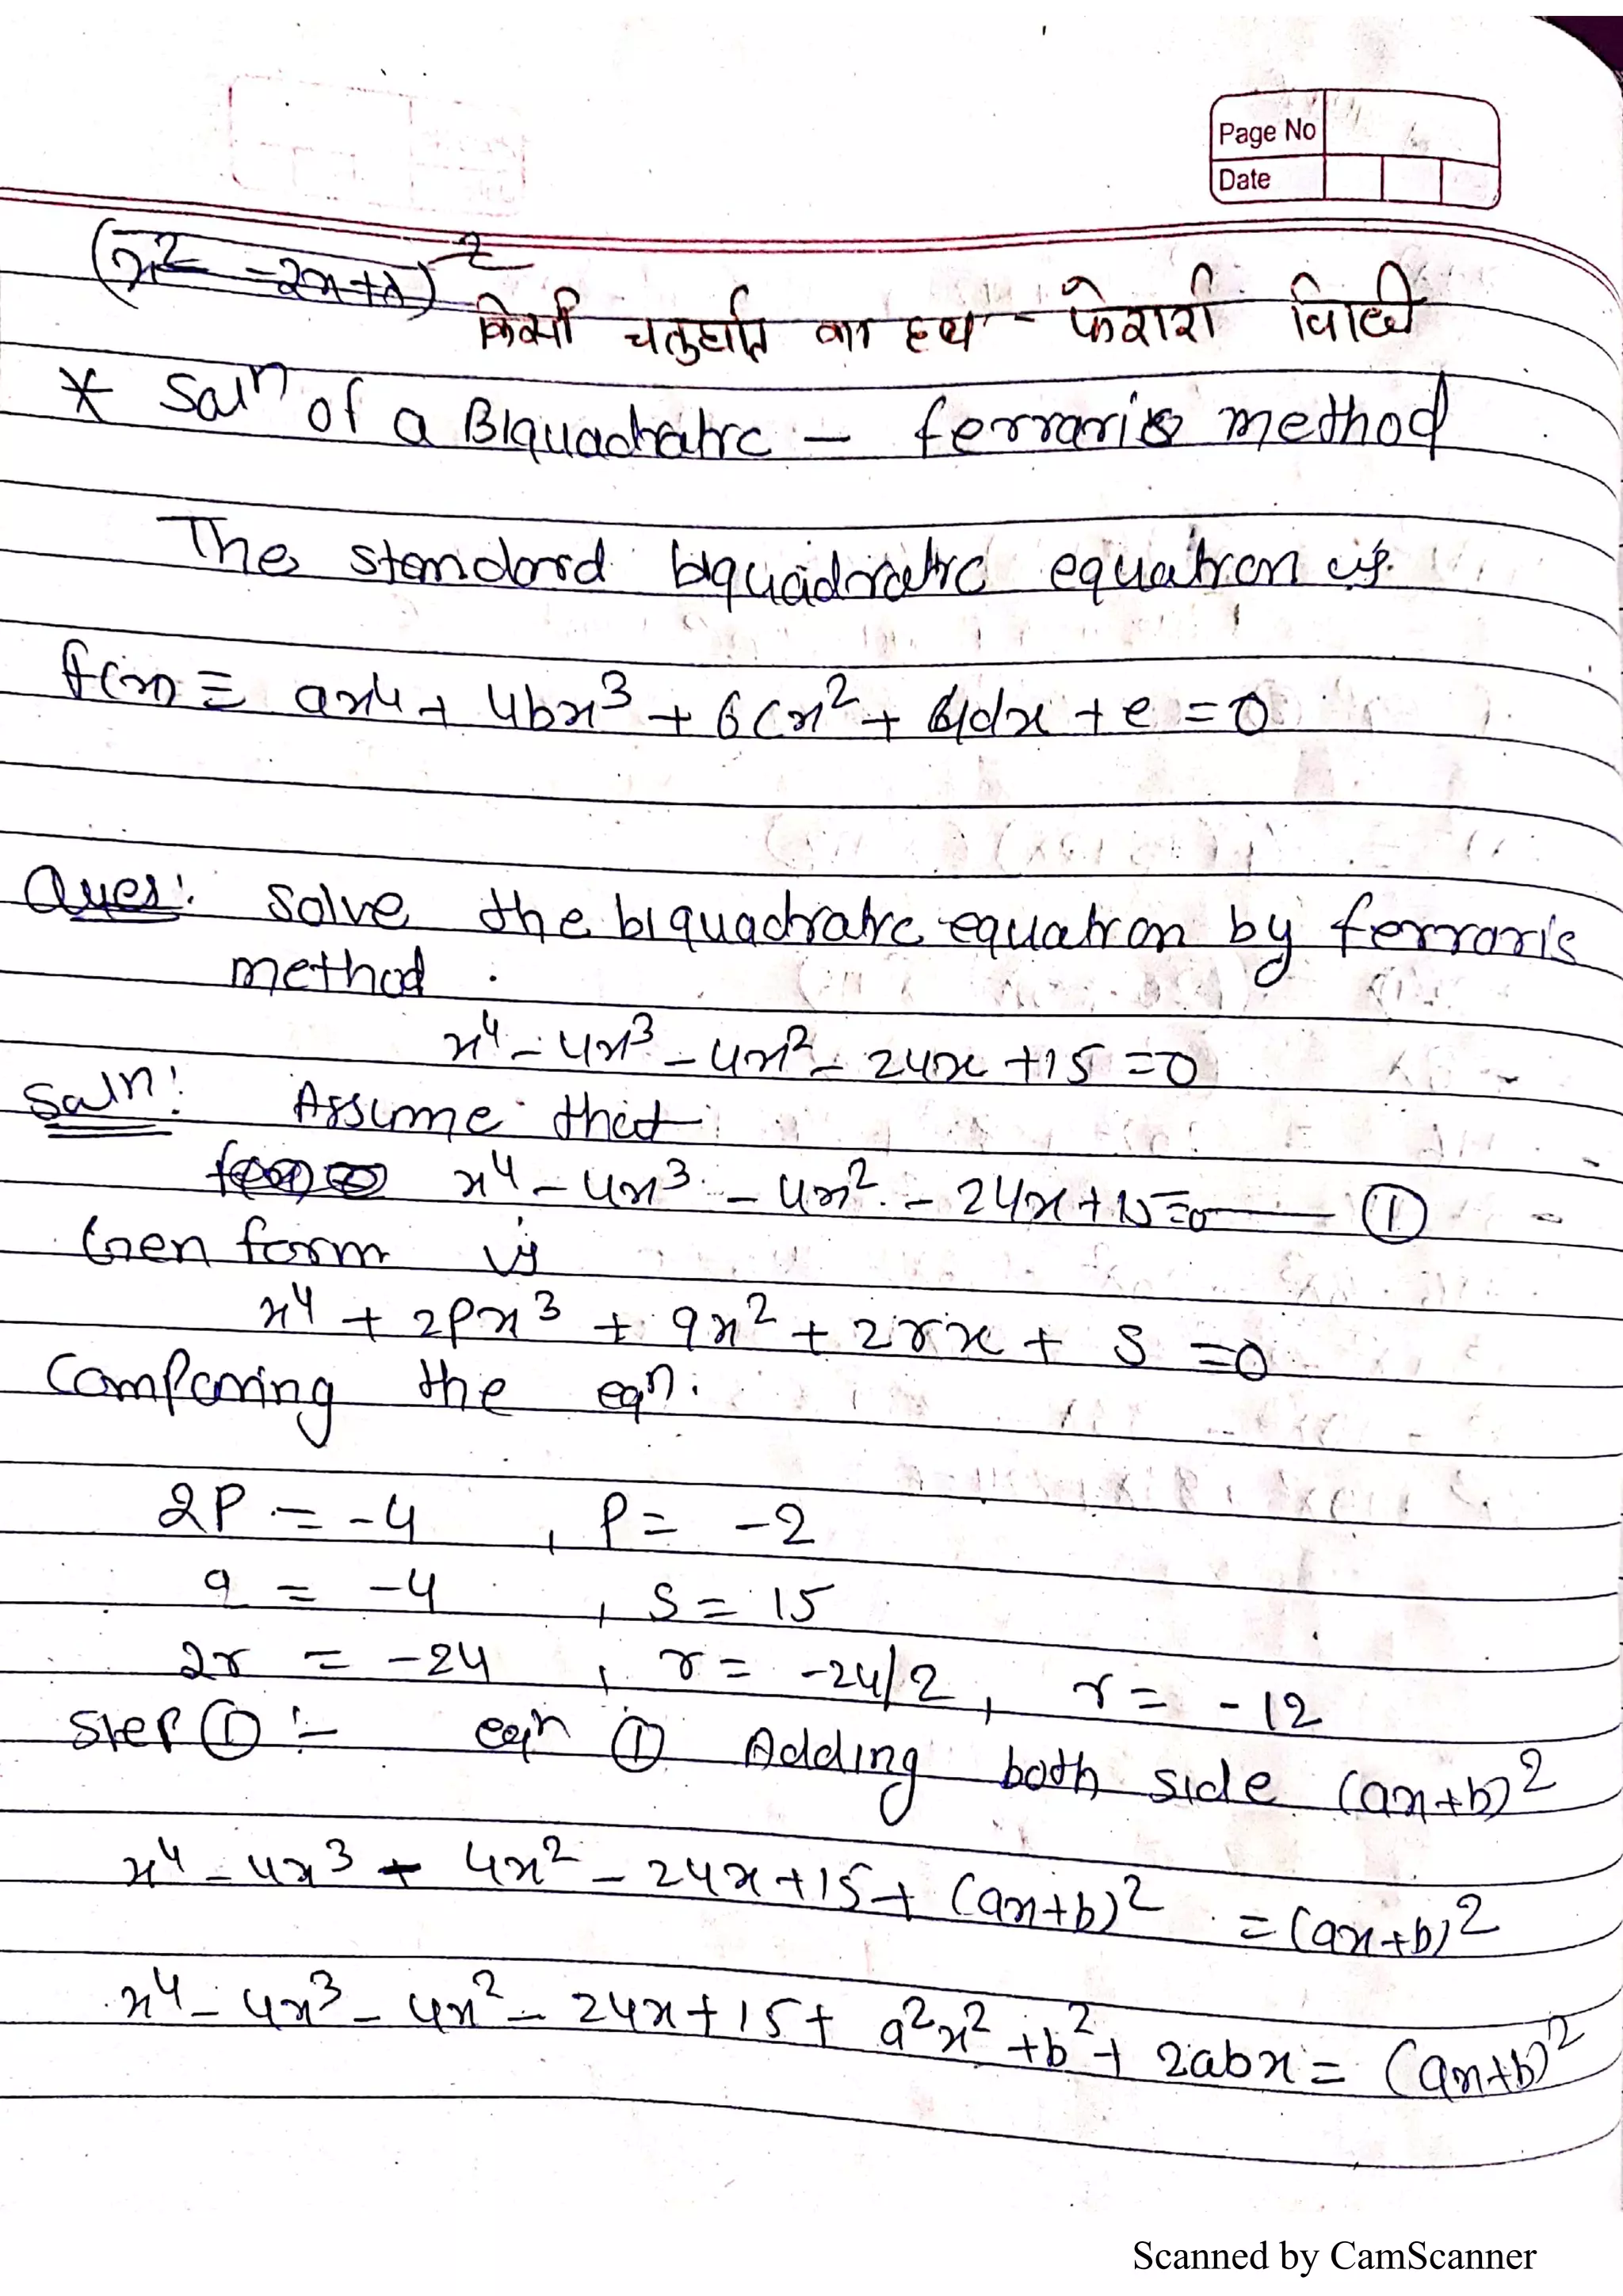 Page No
Date
(x² - 2x + λ)²
किसी चतुर्घात का हल - फेरारी विधि
* Solⁿ of a Biquadratic - ferrari's method
The standard biquadratic equation is
f(x) ≡ ax⁴ + 4bx³ + 6cx² + 4dx + e = 0
Ques: Solve the biquadratic equation by ferraris
method.
x⁴ - 4x³ - 4x² - 24x + 15 = 0
Soln: Assume that
x⁴ - 4x³ - 4x² - 24x + 15 = 0 — ①
Gen form is
x⁴ + 2Px³ + qx² + 2rx + S = 0
Comparing the eqⁿ.
2P = -4 , P = -2
q = -4 , S = 15
2r = -24 , r = -24/2 , r = -12
Step ① :- eqn ① Adding both side (ax+b)²
x⁴ - 4x³ - 4x² - 24x + 15 + (ax+b)² = (ax+b)²
x⁴ - 4x³ - 4x² - 24x + 15 + a²x² + b² + 2abx = (ax+b)²
Scanned by CamScanner